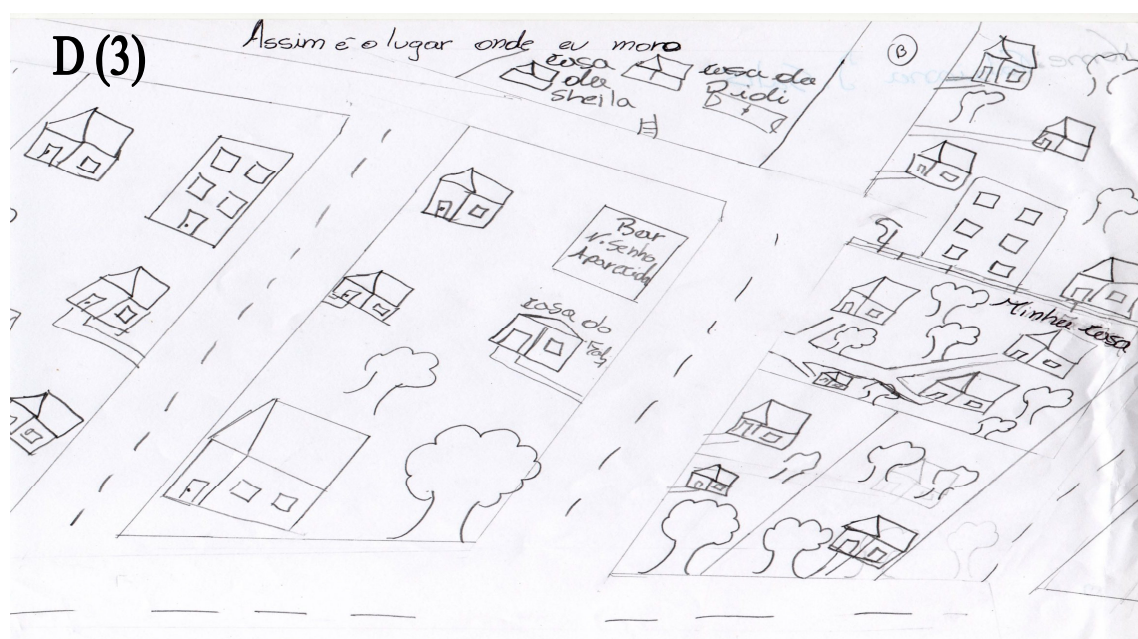 D (3)
Assim é o lugar onde eu moro
B
casa
da
Sheila
casa da
Bidi
Bar
N. Senho
Aparecida
casa do
Minha casa